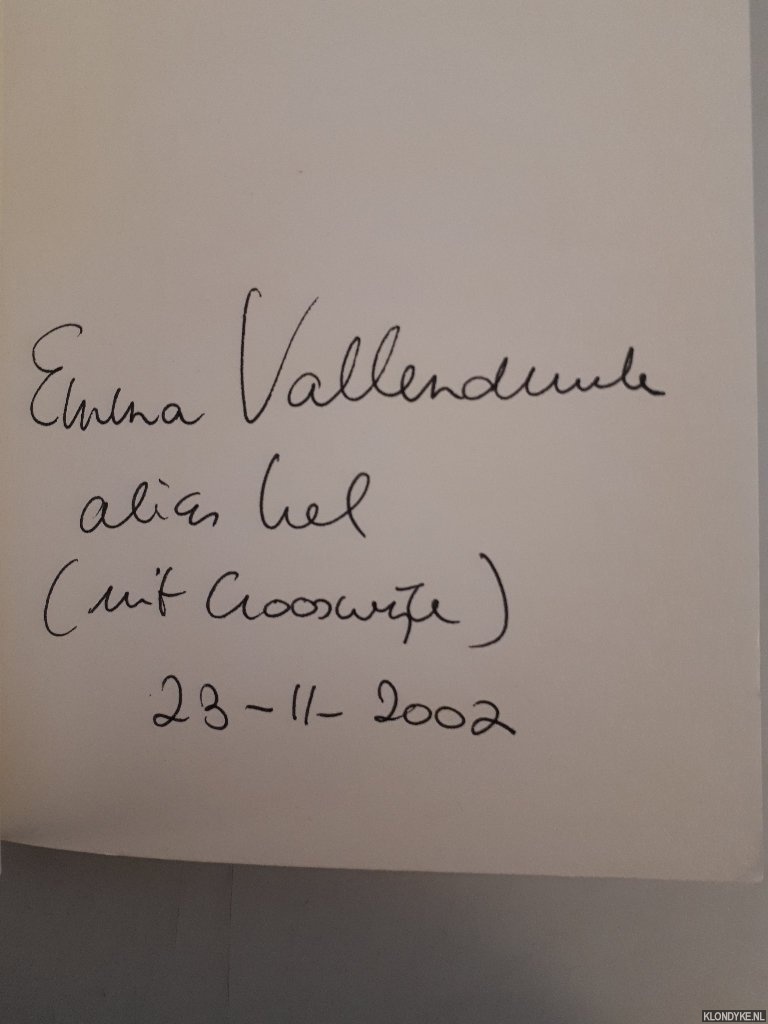 Emma Vallenduuk
alias Nel
(uit Crooswijk)
23-11-2002
KLONDYKE.NL